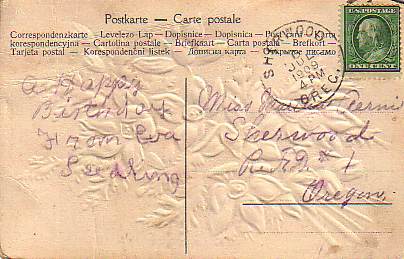 Postkarte — Carte postale
Correspondenzkarte — Levelezo-Lap — Dopisnice — Dopisnica — Post kaart — Karta
korespondencyjna — Cartolina postale — Briefkaart — Carta postala — Brefkort —
Tarjeta postal — Korespondenční listek — Дописна карта — Открытое письмо
SHERWOOD
JUL
1909
4 PM
OREG.
ONE CENT
A Happy
Birthday
From Eva
Miss
Sherwood
Oregon.